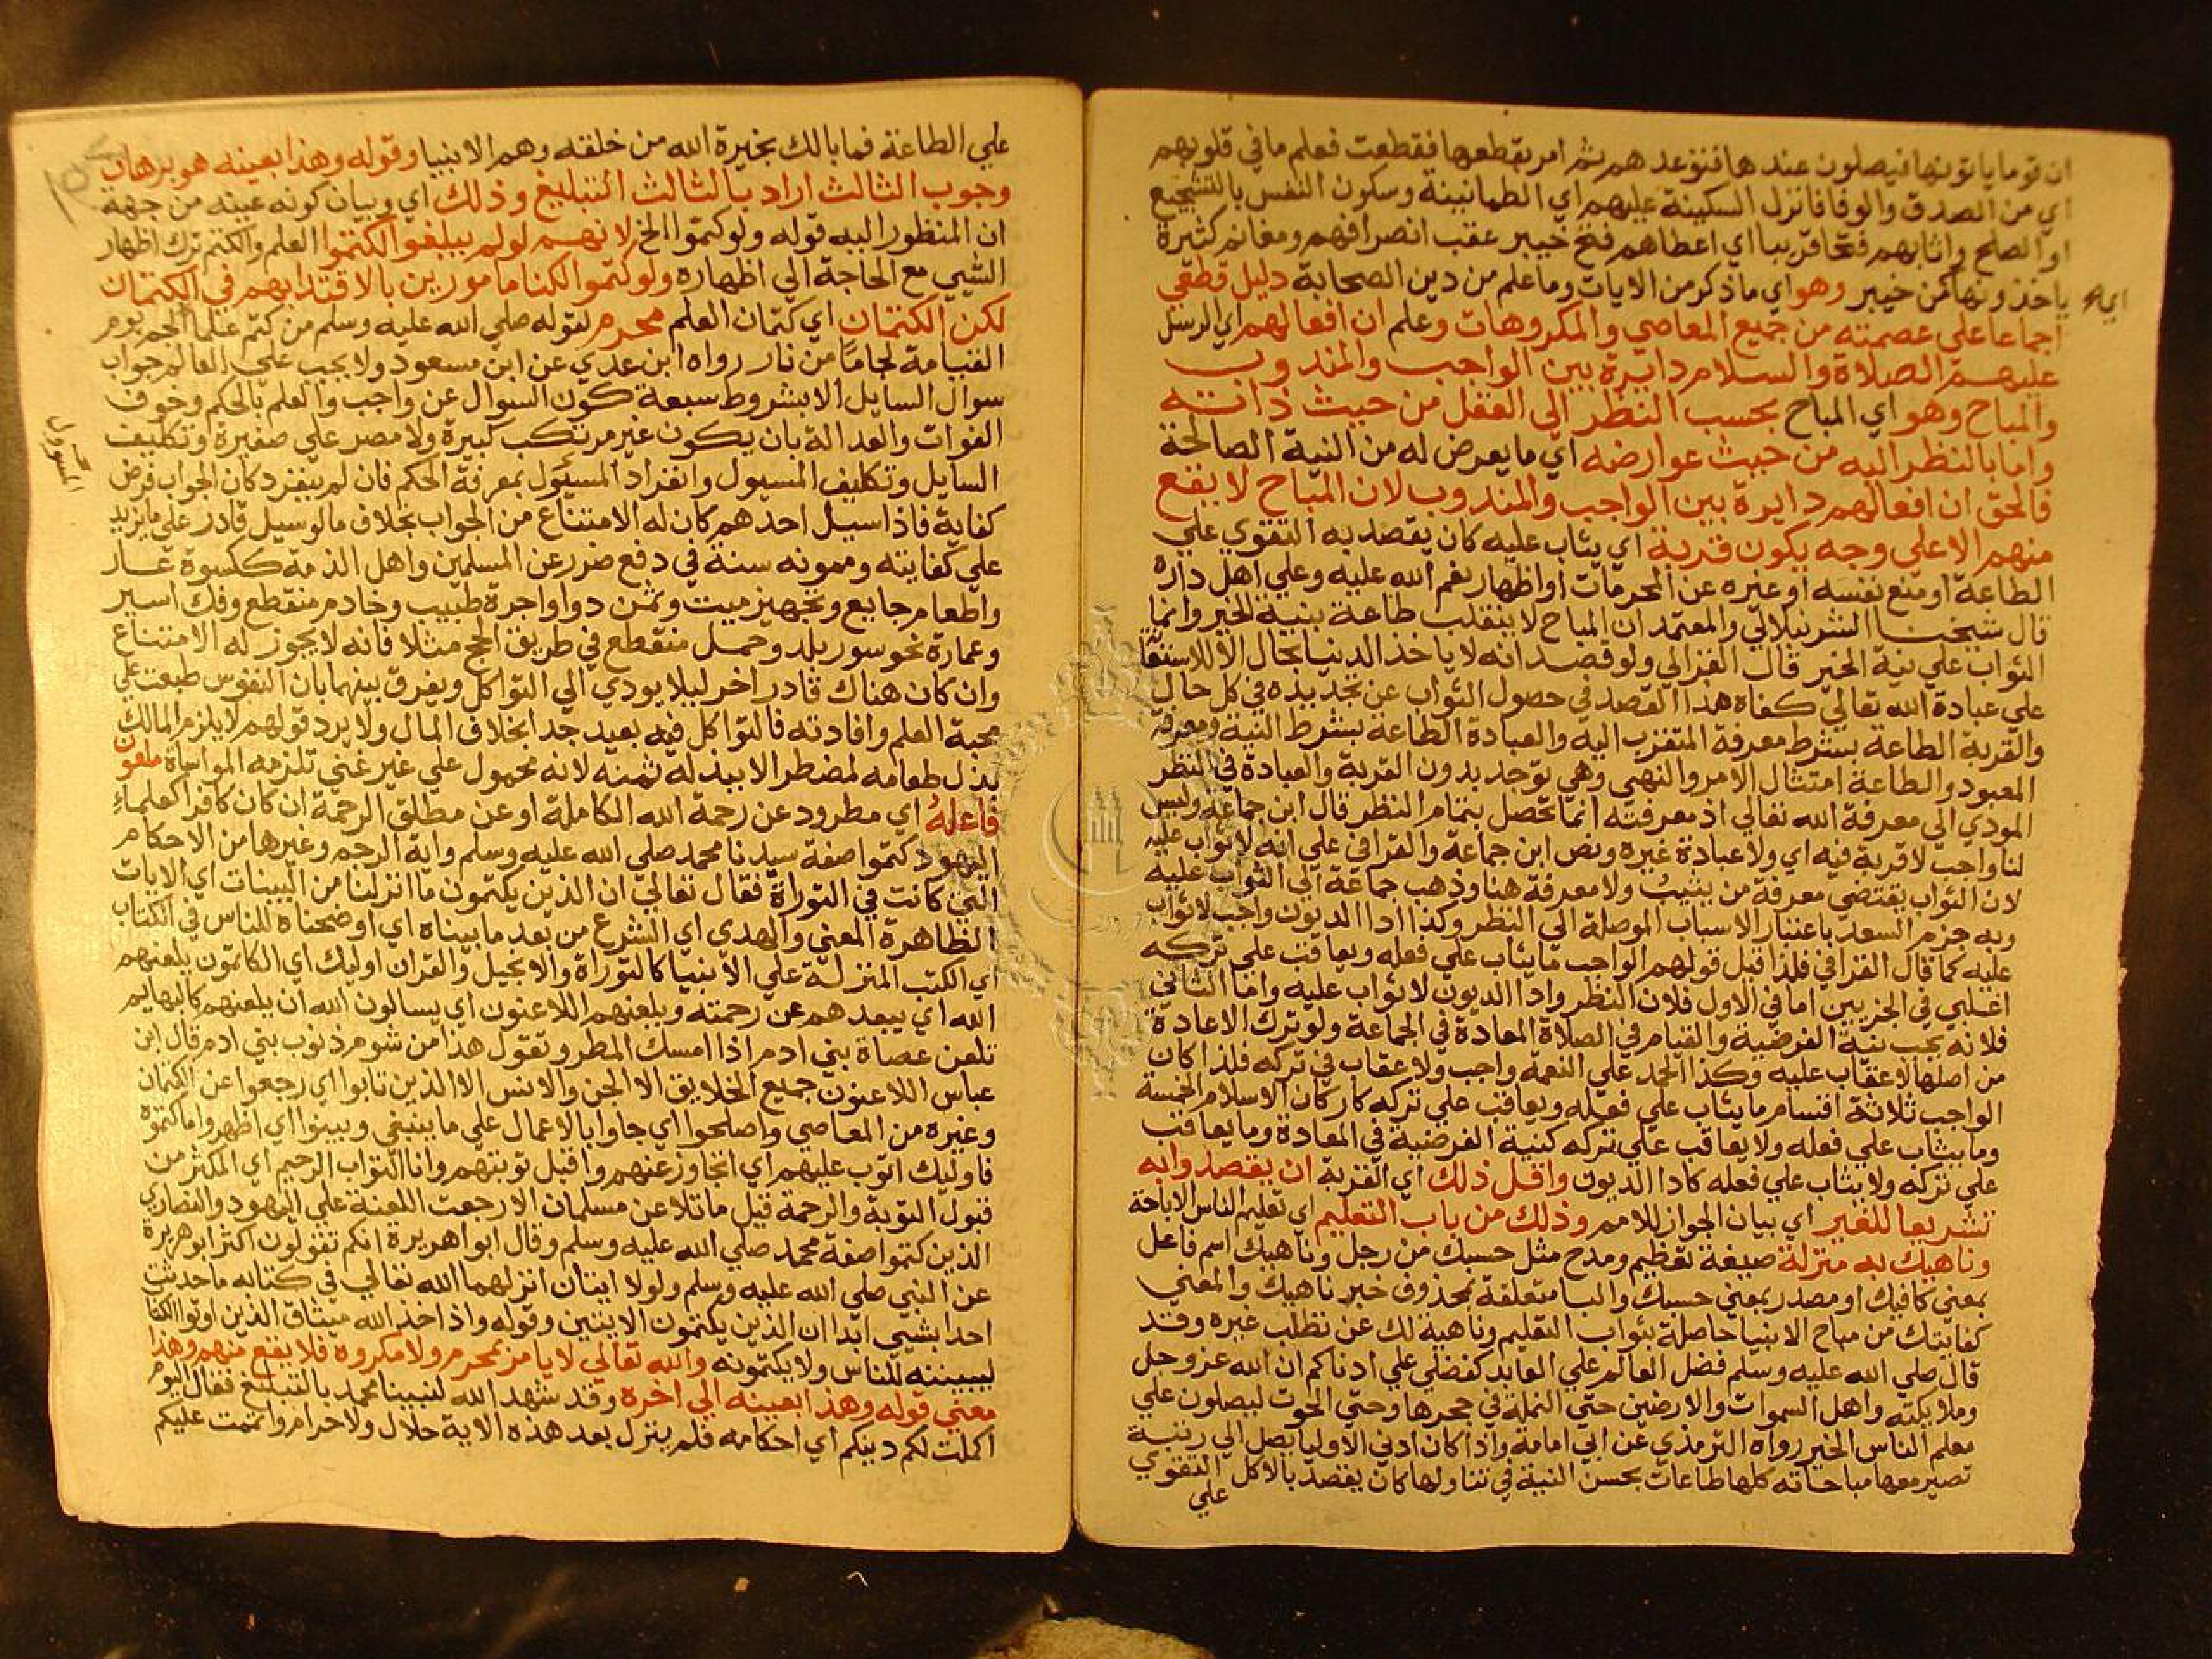 ان قوما ياتونها فيصلون عندها فتوعدهم ثم امر بقطعها فقطعت فعلم ما في قلوبهم
اي من الصدق والوفا فانزل السكينة عليهم اي الطمانينة وسكون النفس بالتشجيع
او الصلح واثابهم فتحا قريبا اي اعطاهم فتح خيبر عقب انصرافهم ومغانم كثيرة
ياخذونها من خيبر وهو اي ما ذكر من الايات وما علم من دين الصحابة دليل قطعي
اي
اجماعا على عصمته من جميع المعاصي والمكروهات وعلم ان افعالهم اي الرسل
عليهم الصلاة والسلام دايرة بين الواجب والمندوب
والمباح وهو اي المباح بحسب النظر الى الفعل من حيث ذاته
واما بالنظر اليه من حيث عوارضه اي ما يعرض له من النية الصالحة
فالحق ان افعالهم دايرة بين الواجب والمندوب لان المباح لا يقع
منهم الا على وجه يكون قربة اي يثاب عليه كان يقصد به التقوي علي
الطاعة او منع نفسه او غيره عن المحرمات او اظهار نعم الله عليه وعلي اهل داره
قال شيخنا الشرنبلالي والمعتمد ان المباح لا ينقلب طاعة بنية الخير وانما
الثواب علي نية الخير قال الغزالي ولو قصد انه لا ياخذ الدنيا بحال الا للاستقا
علي عبادة الله تعالي كفاه هذا القصد في حصول الثواب عن تجديده في كل حال
والقربة الطاعة بشرط معرفة المتقرب اليه والعبادة الطاعة بشرط النية ومعرفة
المعبود والطاعة امتثال الامر والنهي وهي توجد بدون القربة والعبادة في النظر
المودي الي معرفة الله تعالي اذ معرفته انما تحصل بتمام النظر قال ابن جماعة وليس
لنا واجب لا قربة فيه اي ولا عبادة غيره ونص ابن جماعة والقرافي علي انه لا ثواب عليه
لان الثواب يقتضي معرفة من يثيب ولا معرفة هنا وذهب جماعة الي الثواب عليه
وبه جزم السعد باعتبار الاسباب الموصلة الي النظر وكذا ادا الديون واجب لا ثواب
عليه كما قال القرافي فلذا قيل قولهم الواجب ما يثاب علي فعله ويعاقب علي تركه
اغلبي في الجزيين اما في الاول فلان النظر وادا الديون لا ثواب عليه واما الثاني
فلانه يجب نية الفرضية والقيام في الصلاة المعادة في الجماعة ولو ترك الاعادة
من اصلها لا عقاب عليه وكذا الحمد علي النعمة واجب ولا عقاب في تركه فلذا كان
الواجب ثلاثة اقسام ما يثاب علي فعله ويعاقب علي تركه كاركان الاسلام الخمسة
وما يثاب علي فعله ولا يعاقب علي تركه كنية الفرضية في المعادة وما يعاقب
علي تركه ولا يثاب علي فعله كادا الديون واقل ذلك اي القربة ان يقصدوا به
تشريعا للغير اي بيان الجواز للامم وذلك من باب التعليم اي تعليم الناس الاباحة
وناهيك به منزلة صيغة تعظيم ومدح مثل حسبك من رجل وناهيك اسم فاعل
بمعني كافيك او مصدر بمعني حسبك والبا متعلقة بمحذوف خبر ناهيك والمعني
كفايتك من مباح الانبيا حاصلة بثواب التعليم وناهية لك عن تطلب غيره وقد
قال صلي الله عليه وسلم فضل العالم علي العابد كفضلي علي ادناكم ان الله عز وجل
وملايكته واهل السموات والارضين حتي النملة في جحرها وحتي الحوت ليصلون علي
معلم الناس الخير رواه الترمذي عن ابي امامة واذا كان ادني الاوليا يصل الي رتبة
تصير معها مباحاته كلها طاعات بحسن النية في تناولها كان يقصد بالاكل التقوي
علي
علي الطاعة فما بالك بخيرة الله من خلقه وهم الانبيا وقوله وهذا بعينه هو برهان
وجوب الثالث اراد بالثالث التبليغ وذلك اي وبيان كونه عينه من جهة
ان المنظور اليه قوله ولو كتموا الخ لانهم لو لم يبلغوا لكتموا العلم والكتم ترك اظهار
الشي مع الحاجة الي اظهاره ولو كتموا لكنا مامورين بالاقتدا بهم في الكتمان
لكن الكتمان اي كتمان العلم محرم لقوله صلي الله عليه وسلم من كتم علما الجم يوم
القيامة لجاما من نار رواه ابن عدي عن ابن مسعود ولا يجب علي العالم جواب
سوال السايل الا بشروط سبعة كون السوال عن واجب والعلم بالحكم وخوف
الفوات والعدالة بان يكون غير مرتكب كبيرة ولا مصر علي صغيرة وتكليف
السايل وتكليف المسيول وانفراد المسئول بمعرفة الحكم فان لم ينفرد كان الجواب فرض
المسوول
كفاية فاذا سيل احدهم كان له الامتناع من الجواب بخلاف ما لو سيل قادر علي ما يزيد
علي كفايته وممونه سنة في دفع ضرر عن المسلمين واهل الذمة ككسوة عار
واطعام جايع وتجهيز ميت وثمن دوا واجرة طبيب وخادم منقطع وفك اسير
وعمارة نحو سور بلد وحمل منقطع في طريق الحج مثلا فانه لا يجوز له الامتناع
وان كان هناك قادر اخر ليلا يودي الي التواكل ويفرق بينهما بان النفوس طبعت علي
محبة العلم وافادته فالتواكل فيه بعيد جدا بخلاف المال ولا يرد قولهم لا يلزم المالك
بذل طعامه لمضطر الا ببذله ثمنه لانه محمول علي غير غني تلزمه المواساة ملعون
فاعله اي مطرود عن رحمة الله الكاملة او عن مطلق الرحمة ان كان كافرا كعلماء
اليهود كتموا صفة سيدنا محمد صلي الله عليه وسلم واية الرجم وغيرها من الاحكام
التي كانت في التوراة فقال تعالي ان الذين يكتمون ما انزلنا من البينات اي الايات
الظاهرة المعني والهدي اي الشرع من بعد ما بيناه اي اوضحناه للناس في الكتاب
اي الكتب المنزلة علي الانبيا كالتوراة والانجيل والقران اوليك اي الكاتمون يلعنهم
الله اي يبعدهم عن رحمته ويلعنهم اللاعنون اي يسالون الله ان يلعنهم كالبهايم
تلعن عصاة بني ادم اذا امسك المطر وتقول هذا من شوم ذنوب بني ادم قال ابن
عباس اللاعنون جميع الخلايق الا الجن والانس الا الذين تابوا اي رجعوا عن الكتمان
وغيره من المعاصي واصلحوا اي جاوا بالاعمال علي ما ينبغي وبينوا اي اظهروا ما كتموه
فاوليك اتوب عليهم اي اتجاوز عنهم واقبل توبتهم وانا التواب الرحيم اي المكثر من
قبول التوبة والرحمة قيل ما تلاعن مسلمان الا رجعت اللعنة علي اليهود والنصاري
الذين كتموا صفة محمد صلي الله عليه وسلم وقال ابو اهريرة انكم تقولون اكثر ابو هريرة
عن النبي صلي الله عليه وسلم ولولا ايتان انزلهما الله تعالي في كتابه ما حدثت
احدا بشيي ابدا ان الذين يكتمون الايتين وقوله واذ اخذ الله ميثاق الذين اوتوا الكتا
ليبيننه للناس ولا يكتمونه والله تعالي لا يامر بمحرم ولا مكروه فلا يقع منهم وهذا
معني قوله وهذا بعينه الي اخره وقد شهد الله لنبينا محمد بالتبليغ فقال اليوم
اكملت لكم دينكم اي احكامه فلم ينزل بعد هذه الاية حلال ولا حرام واتممت عليكم